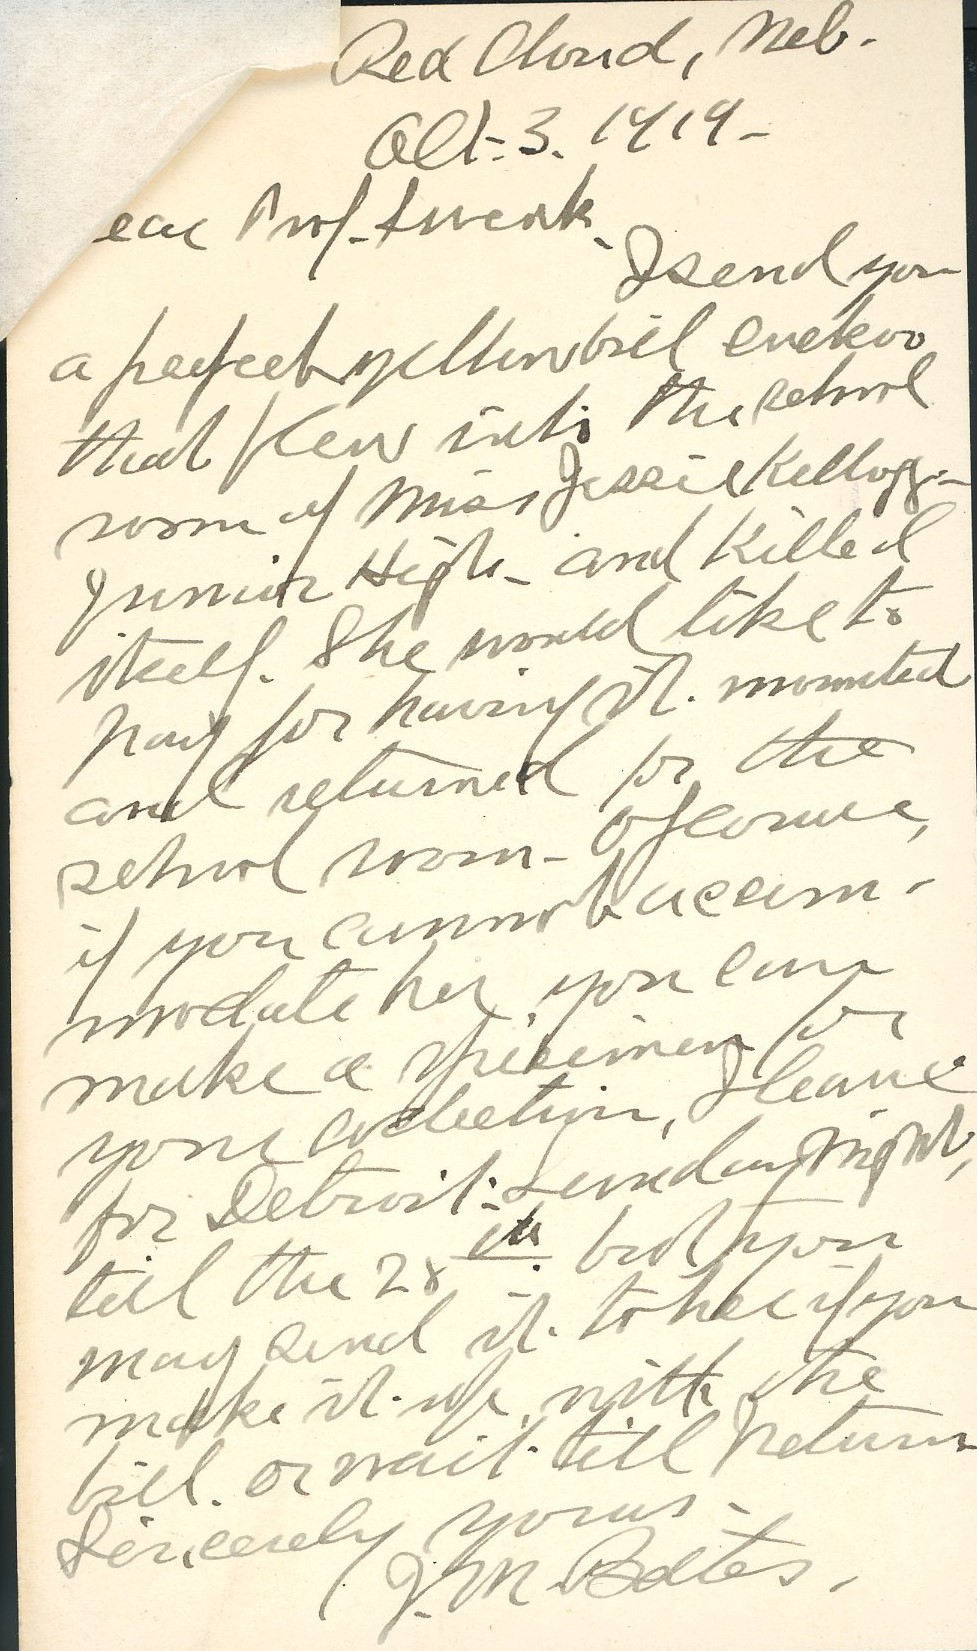 Red Cloud, Neb.
Oct. 3. 1919-
ear Prof. Swenk.
I send you
a perfect yellowbill cuckoo
that flew into the school
room of Miss Jessie Kellogg-
Junior High- and killed
itself. She would like to
pay for having it. mounted
and returned for the
school room- Of course,
if you cannot accom-
modate her, you can
make a specimen for
your collection, I leave
for Detroit. Sunday night,
till the 28th. but you
may send it. to her if you
make it. up, with the
bill. or wait till I return
Sincerely yours-
J. M. Bates.